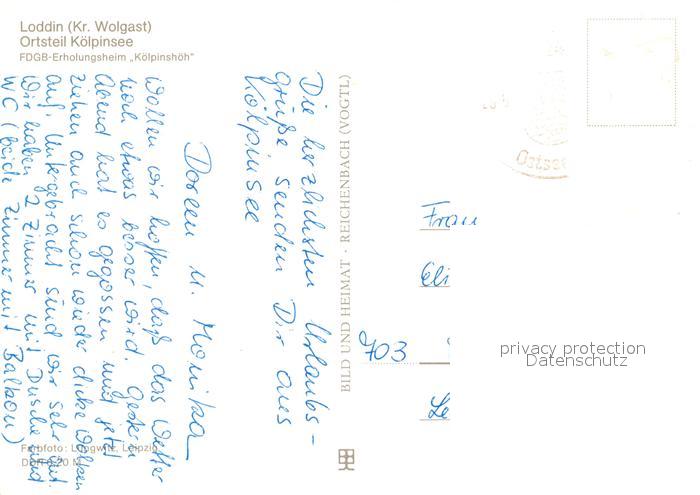 Loddin (Kr. Wolgast)
Ortsteil Kölpinsee
FDGB-Erholungsheim „Kölpinshöh"
Die herzlichsten Urlaubs-
grüße senden Dir aus
Kölpinsee
Doreen u. Monika
Wollen wir hoffen, daß das Wetter
noch etwas besser wird. Gestern
Abend hat es gegossen und jetzt
ziehen auch schon wieder dicke Wolken
auf. Untergebracht sind wir sehr gut.
Wir haben 2 Zimmer mit Dusche und
WC (beide Zimmer mit Balkon)
Farbfoto: Langwitz, Leipzig
DDR 0,20 M
BILD UND HEIMAT · REICHENBACH (VOGTL)
Ostsee
Frau
Eli
703
Le
privacy protection
Datenschutz